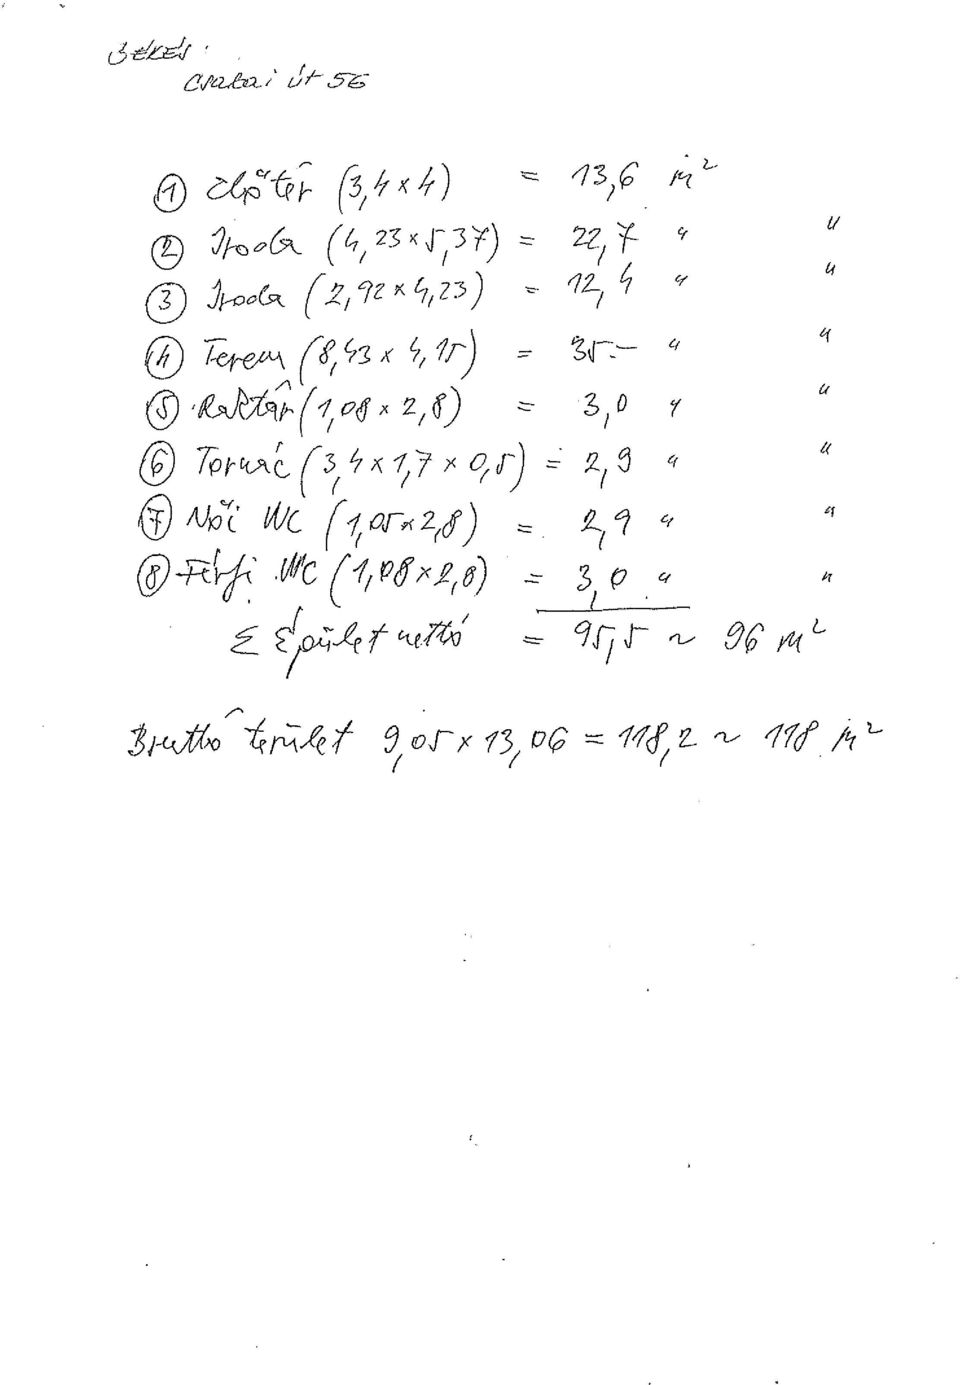 BÉKÉS.
Csabai út 56
① Előtér (3,4 x 4) = 13,6 m²
② Iroda (4,23 x 5,37) = 22,7 " "
③ Iroda (2,92 x 4,23) = 12,4 " "
④ Terem (8,43 x 4,15) = 35.- " "
⑤ Raktár (1,08 x 2,8) = 3,0 " "
⑥ Tornác (3,4 x 1,7 x 0,5) = 2,9 " "
⑦ Női WC (1,05 x 2,8) = 2,9 " "
⑧ Férfi WC (1,08 x 2,8) = 3,0 " "
Σ Épület nettó = 95,5 ~ 96 m²
Bruttó terület 9,05 x 13,06 = 118,2 ~ 118 m²